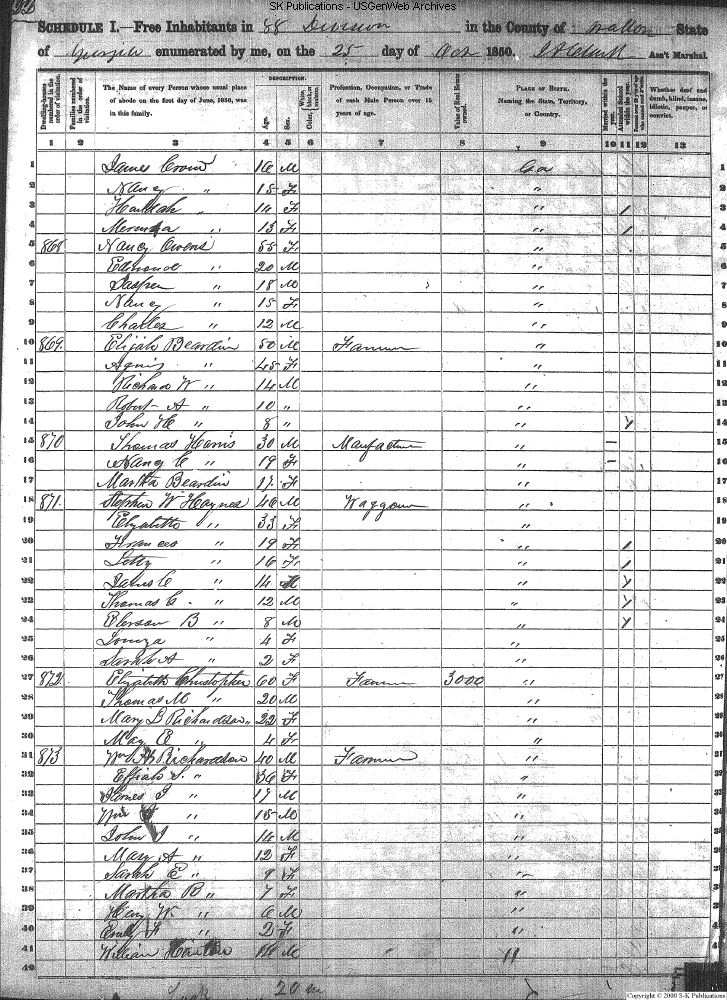 SK Publications - USGenWeb Archives
SCHEDULE I.—Free Inhabitants in 88 Division in the County of Walton State
of Georgia enumerated by me, on the 25 day of Oct 1850. Ass't Marshal.
Dwelling-houses numbered in the order of visitation.
Families numbered in the order of visitation.
The Name of every Person whose usual place of abode on the first day of June, 1850, was in this family.
DESCRIPTION.
Age.
Sex.
Color, White, black, or mulatto.
Profession, Occupation, or Trade of each Male Person over 15 years of age.
Value of Real Estate owned.
PLACE OF BIRTH. Naming the State, Territory, or Country.
Married within the year.
Attended School within the year.
Whether deaf and dumb, blind, insane, idiotic, pauper, or convict.
1 2 3 4 5 6 7 8 9 10 11 12 13
1 James 16 M Ga 1
2 Nancy " 15 F " 2
3 Hannah " 14 F " / 3
4 " 13 F " / 4
5 868 Nancy Owens 55 F " 5
6 Edmond " 20 M " 6
7 Jasper " 18 M " 7
8 Nancy " 15 F " 8
9 Charles " 12 M " 9
10 869. Elijah Beardin 50 M Farmer " 10
11 Agnis " 45 F " 11
12 Richard W " 14 M " 12
13 Robert A " 10 " " 13
14 John H " 8 " " / 14
15 870 Thomas Harris 30 M " – 15
16 Nancy C " 19 F " – 16
17 Martha Beardin 17 F " 17
18 871. Stephen W Haynes 46 M Waggoner " 18
19 Elizabeth " 33 F " 19
20 Frances " 19 F " / 20
21 Letty " 16 F " / 21
22 James C " 14 M " / 22
23 Thomas C. " 12 M " / 23
24 B " 8 M " / 24
25 Louiza " 4 F " 25
26 Sarah A " 2 F " 26
27 872 Elizabeth Christopher 60 F Farmer 3000 " 27
28 Thomas M " 20 M " 28
29 Mary B Richardson " 22 F " 29
30 May E " 4 F " 30
31 873 Wm H Richardson 40 M Farmer " 31
32 S. " 36 F " 32
33 James J " 17 M " 33
34 Wm " 15 M " 34
35 John " 14 M " 35
36 Mary A " 12 F " 36
37 Sarah E " 9 F " 37
38 Martha B " 7 F " 38
39 Henry W. " 6 M " 39
40 Emily " 2 F " 40
41 William M " 41
42
20 m
Copyright © 2000 S-K Publications